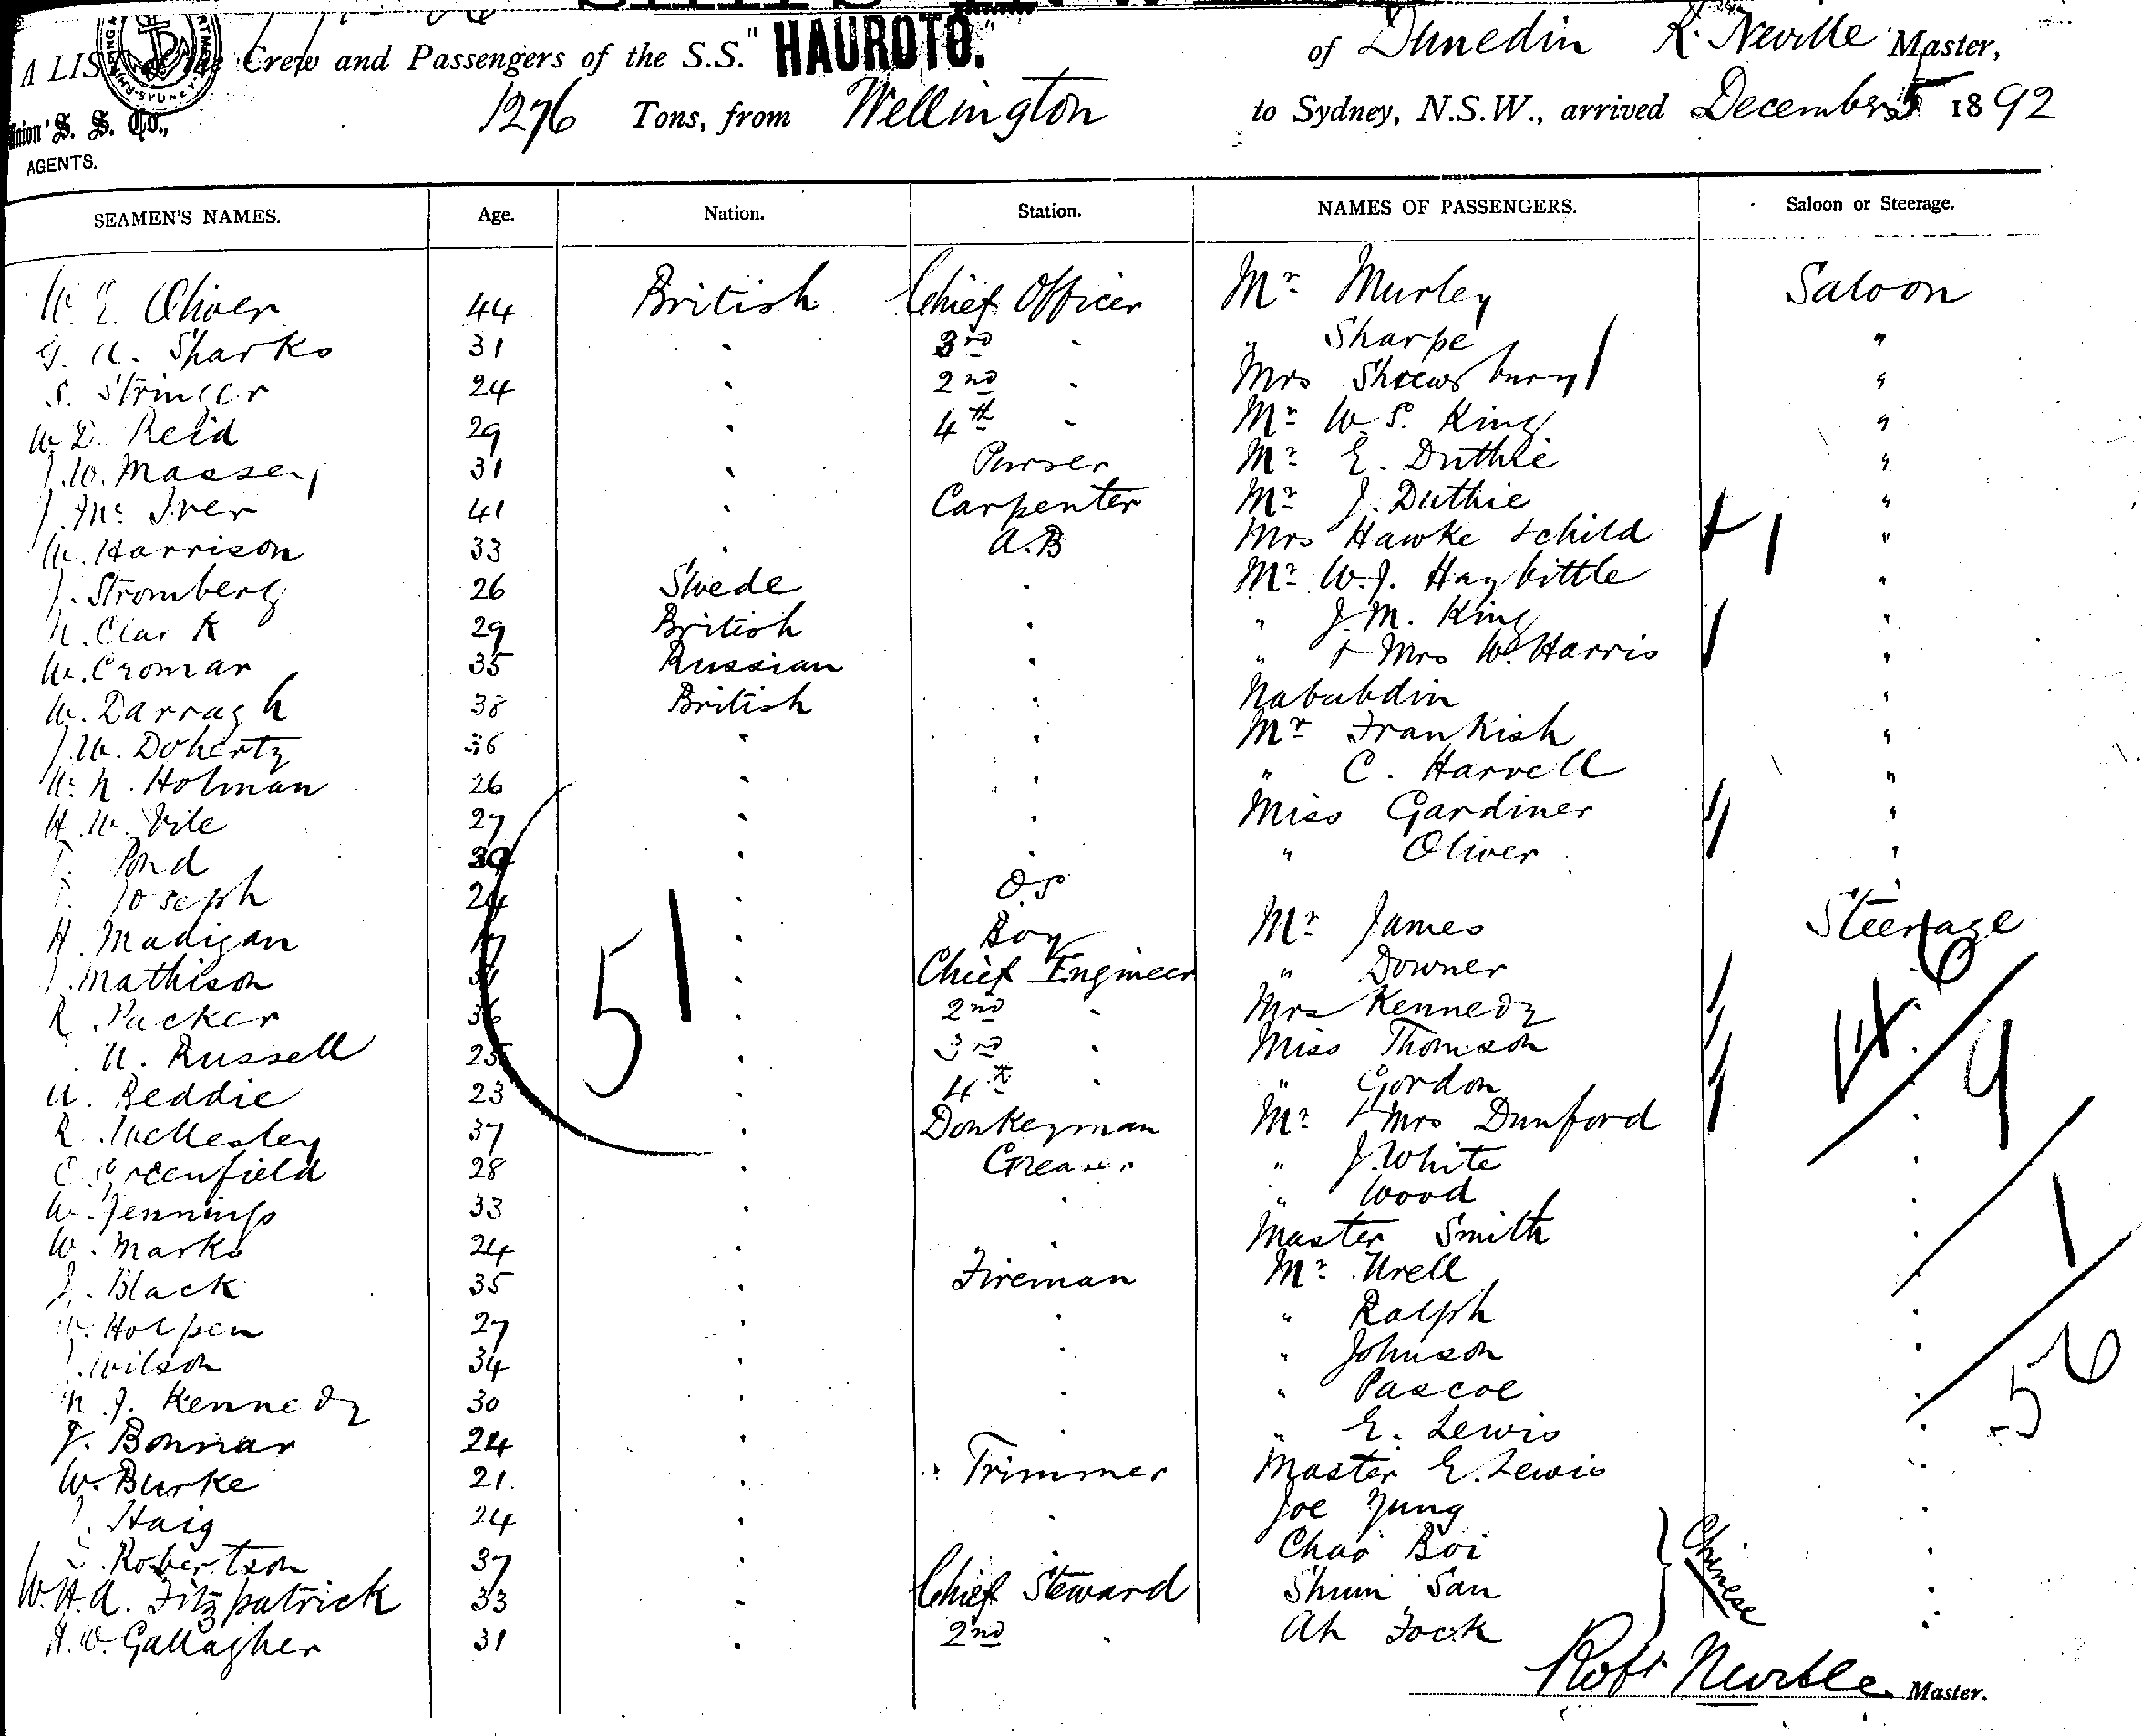 A LIST of the Crew and Passengers of the S.S. "HAUROTO." of Dunedin R. Neville Master,
Union S. S. Co., 1276 Tons, from Wellington to Sydney, N.S.W., arrived December 5 1892
AGENTS.
SEAMEN'S NAMES. Age. Nation. Station. NAMES OF PASSENGERS. Saloon or Steerage.
W. E. Oliver 44 British Chief Officer Mr Murley Saloon
G. A. Sharks 31 " 3rd " " Sharpe "
S. Stringer 24 " 2nd " Mrs Shrewsbury "
W. D. Reid 29 " 4th " Mr W. S. King "
J. W. Massey 31 " Purser Mr E. Duthie "
J. Mc Iver 41 " Carpenter Mr J. Duthie "
W. Harrison 33 " A.B Mrs Hawke + child 1 "
J. Stromberg 26 Swede " Mr W. J. Haybittle "
N. Clark 29 British " " J. M. King "
W. Cromar 35 Russian " " + Mrs W. Harris "
W. Darragh 38 British " Nababdin "
J. W. Doherty 36 " " Mr Frankish "
W. N. Holman 26 " " " C. Harvell "
H. W. Vile 27 " " Miss Gardiner "
T. Pond 39 " " " Oliver "
T. Joseph 24 " O.S "
H. Madigan 17 " Boy Mr James Steerage
J. Mathison 51 " Chief Engineer " Downer "
R. Packer 36 " 2nd " Mrs Kennedy "
A. Russell 25 " 3rd " Miss Thomson "
A. Beddie 23 " 4th " " Gordon "
R. Wellesley 37 " Donkeyman Mr + Mrs Dunford "
C. Greenfield 28 " Greaser " J. White "
W. Jennings 33 " " " Wood "
W. Marks 24 " " Master Smith "
J. Black 35 " Fireman Mr Urell "
W. Holpen 27 " " " Ralph "
J. Wilson 34 " " " Johnson "
N. J. Kennedy 30 " " " Pascoe "
J. Bonnar 24 " " " E. Lewis "
W. Burke 21. " Trimmer Master E. Lewis "
J. Haig 24 " " Joe Yung "
Robertson 37 " " Chao Boi Chinese "
W. H. A. Fitzpatrick 33 " Chief Steward Shum San "
H. O. Gallagher 31 " 2nd " Ah Fock "
51
6
9
1
56
Robt Neville Master.